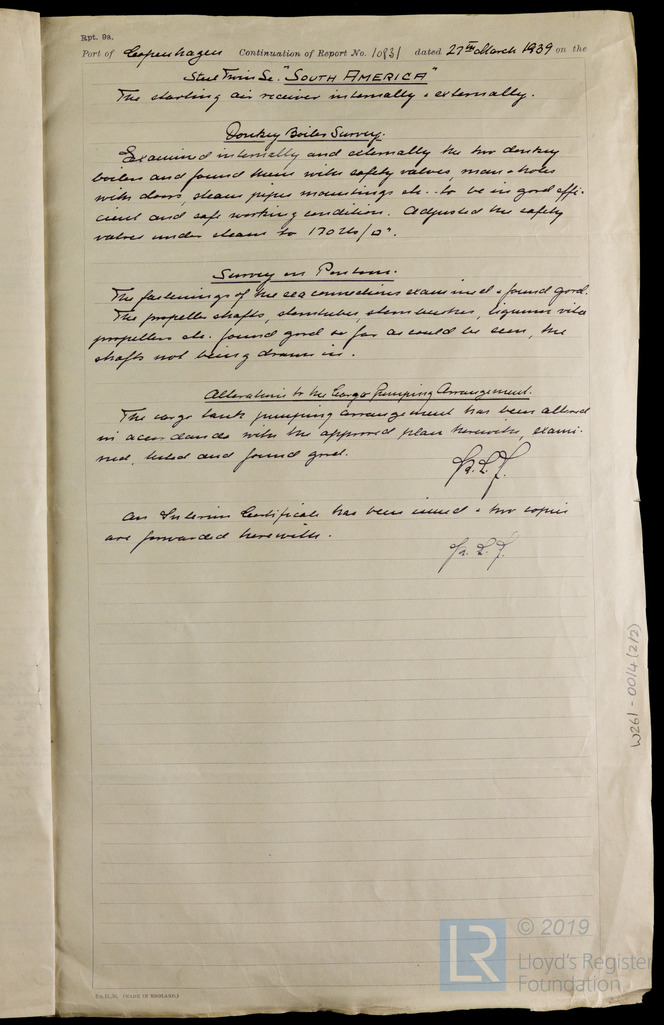 Rpt. 9a.
Port of Copenhagen Continuation of Report No. 10831 dated 27TH March 1939 on the
Steel Twin Sc. "SOUTH AMERICA"
The starting air receiver internally & externally.
Donkey Boiler Survey.
Examined internally and externally the two donkey
boilers and found them with safety valves, man & holes
with doors, steam pipes mountings etc. to be in good effi-
cient and safe working condition. Adjusted the safety
valves under steam to 170 lbs/□".
Survey on Pontoon.
The fastenings of the sea connections examined & found good.
The propeller shafts, sterntubes, stern bushes, lignum vitæ
propellers etc. found good so far as could be seen, the
shafts not being drawn in.
Alterations to the Cargo Pumping Arrangement.
The cargo tank pumping arrangement has been altered
in accordande with the approved plan herewith, exami-
ned, tested and found good.
An Interim Certificate has been issued & two copies
are forwarded herewith.
W261-0014(2/2)
(MADE IN ENGLAND.)
LR
© 2019
Lloyd's Register
Foundation